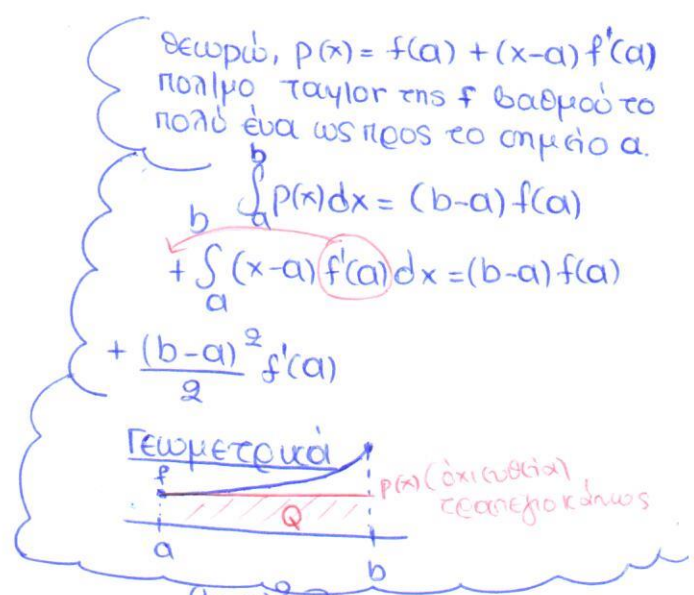 θεωρώ, p(x) = f(a) + (x-a) f'(a)
πολ/μο Taylor της f βαθμού το
πολύ ένα ως προς το σημείο a.
∫_a^b p(x)dx = (b-a) f(a)
+ ∫_a^b (x-a) f'(a) dx = (b-a) f(a)
+ (b-a)^2/2 f'(a)
Γεωμετρικά
f
p(x) (όχι ευθεία)
τραπέζιο κάπως
Q
a
b